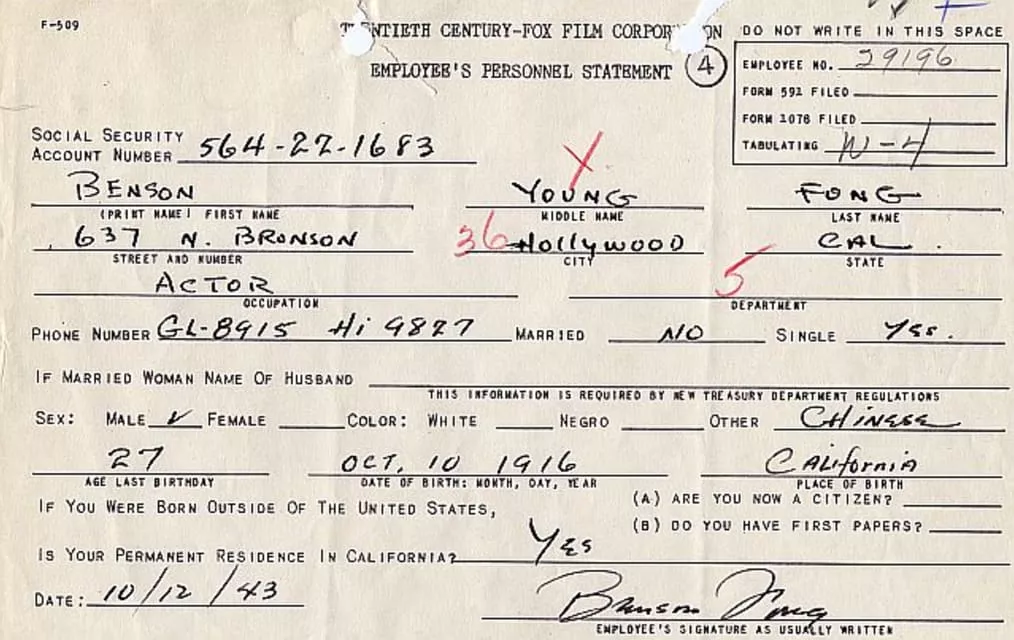 F-509
TWENTIETH CENTURY-FOX FILM CORPORATION DO NOT WRITE IN THIS SPACE
EMPLOYEE'S PERSONNEL STATEMENT 4
EMPLOYEE NO. 29196
FORM 591 FILED
FORM 1078 FILED
TABULATING W-4
SOCIAL SECURITY
ACCOUNT NUMBER 564-22-1683
BENSON YOUNG FONG
(PRINT NAME) FIRST NAME MIDDLE NAME LAST NAME
637 N. BRONSON 36 Hollywood CAL.
STREET AND NUMBER CITY STATE
ACTOR 5
OCCUPATION DEPARTMENT
PHONE NUMBER GL-8915 Hi 9827 MARRIED NO SINGLE Yes.
IF MARRIED WOMAN NAME OF HUSBAND
THIS INFORMATION IS REQUIRED BY NEW TREASURY DEPARTMENT REGULATIONS
SEX: MALE ✓ FEMALE COLOR: WHITE NEGRO OTHER CHINESE
27 OCT. 10 1916 CALifornia
AGE LAST BIRTHDAY DATE OF BIRTH: MONTH, DAY, YEAR PLACE OF BIRTH
IF YOU WERE BORN OUTSIDE OF THE UNITED STATES, (A) ARE YOU NOW A CITIZEN?
(B) DO YOU HAVE FIRST PAPERS?
IS YOUR PERMANENT RESIDENCE IN CALIFORNIA? Yes
DATE: 10/12/43 Benson Fong
EMPLOYEE'S SIGNATURE AS USUALLY WRITTEN